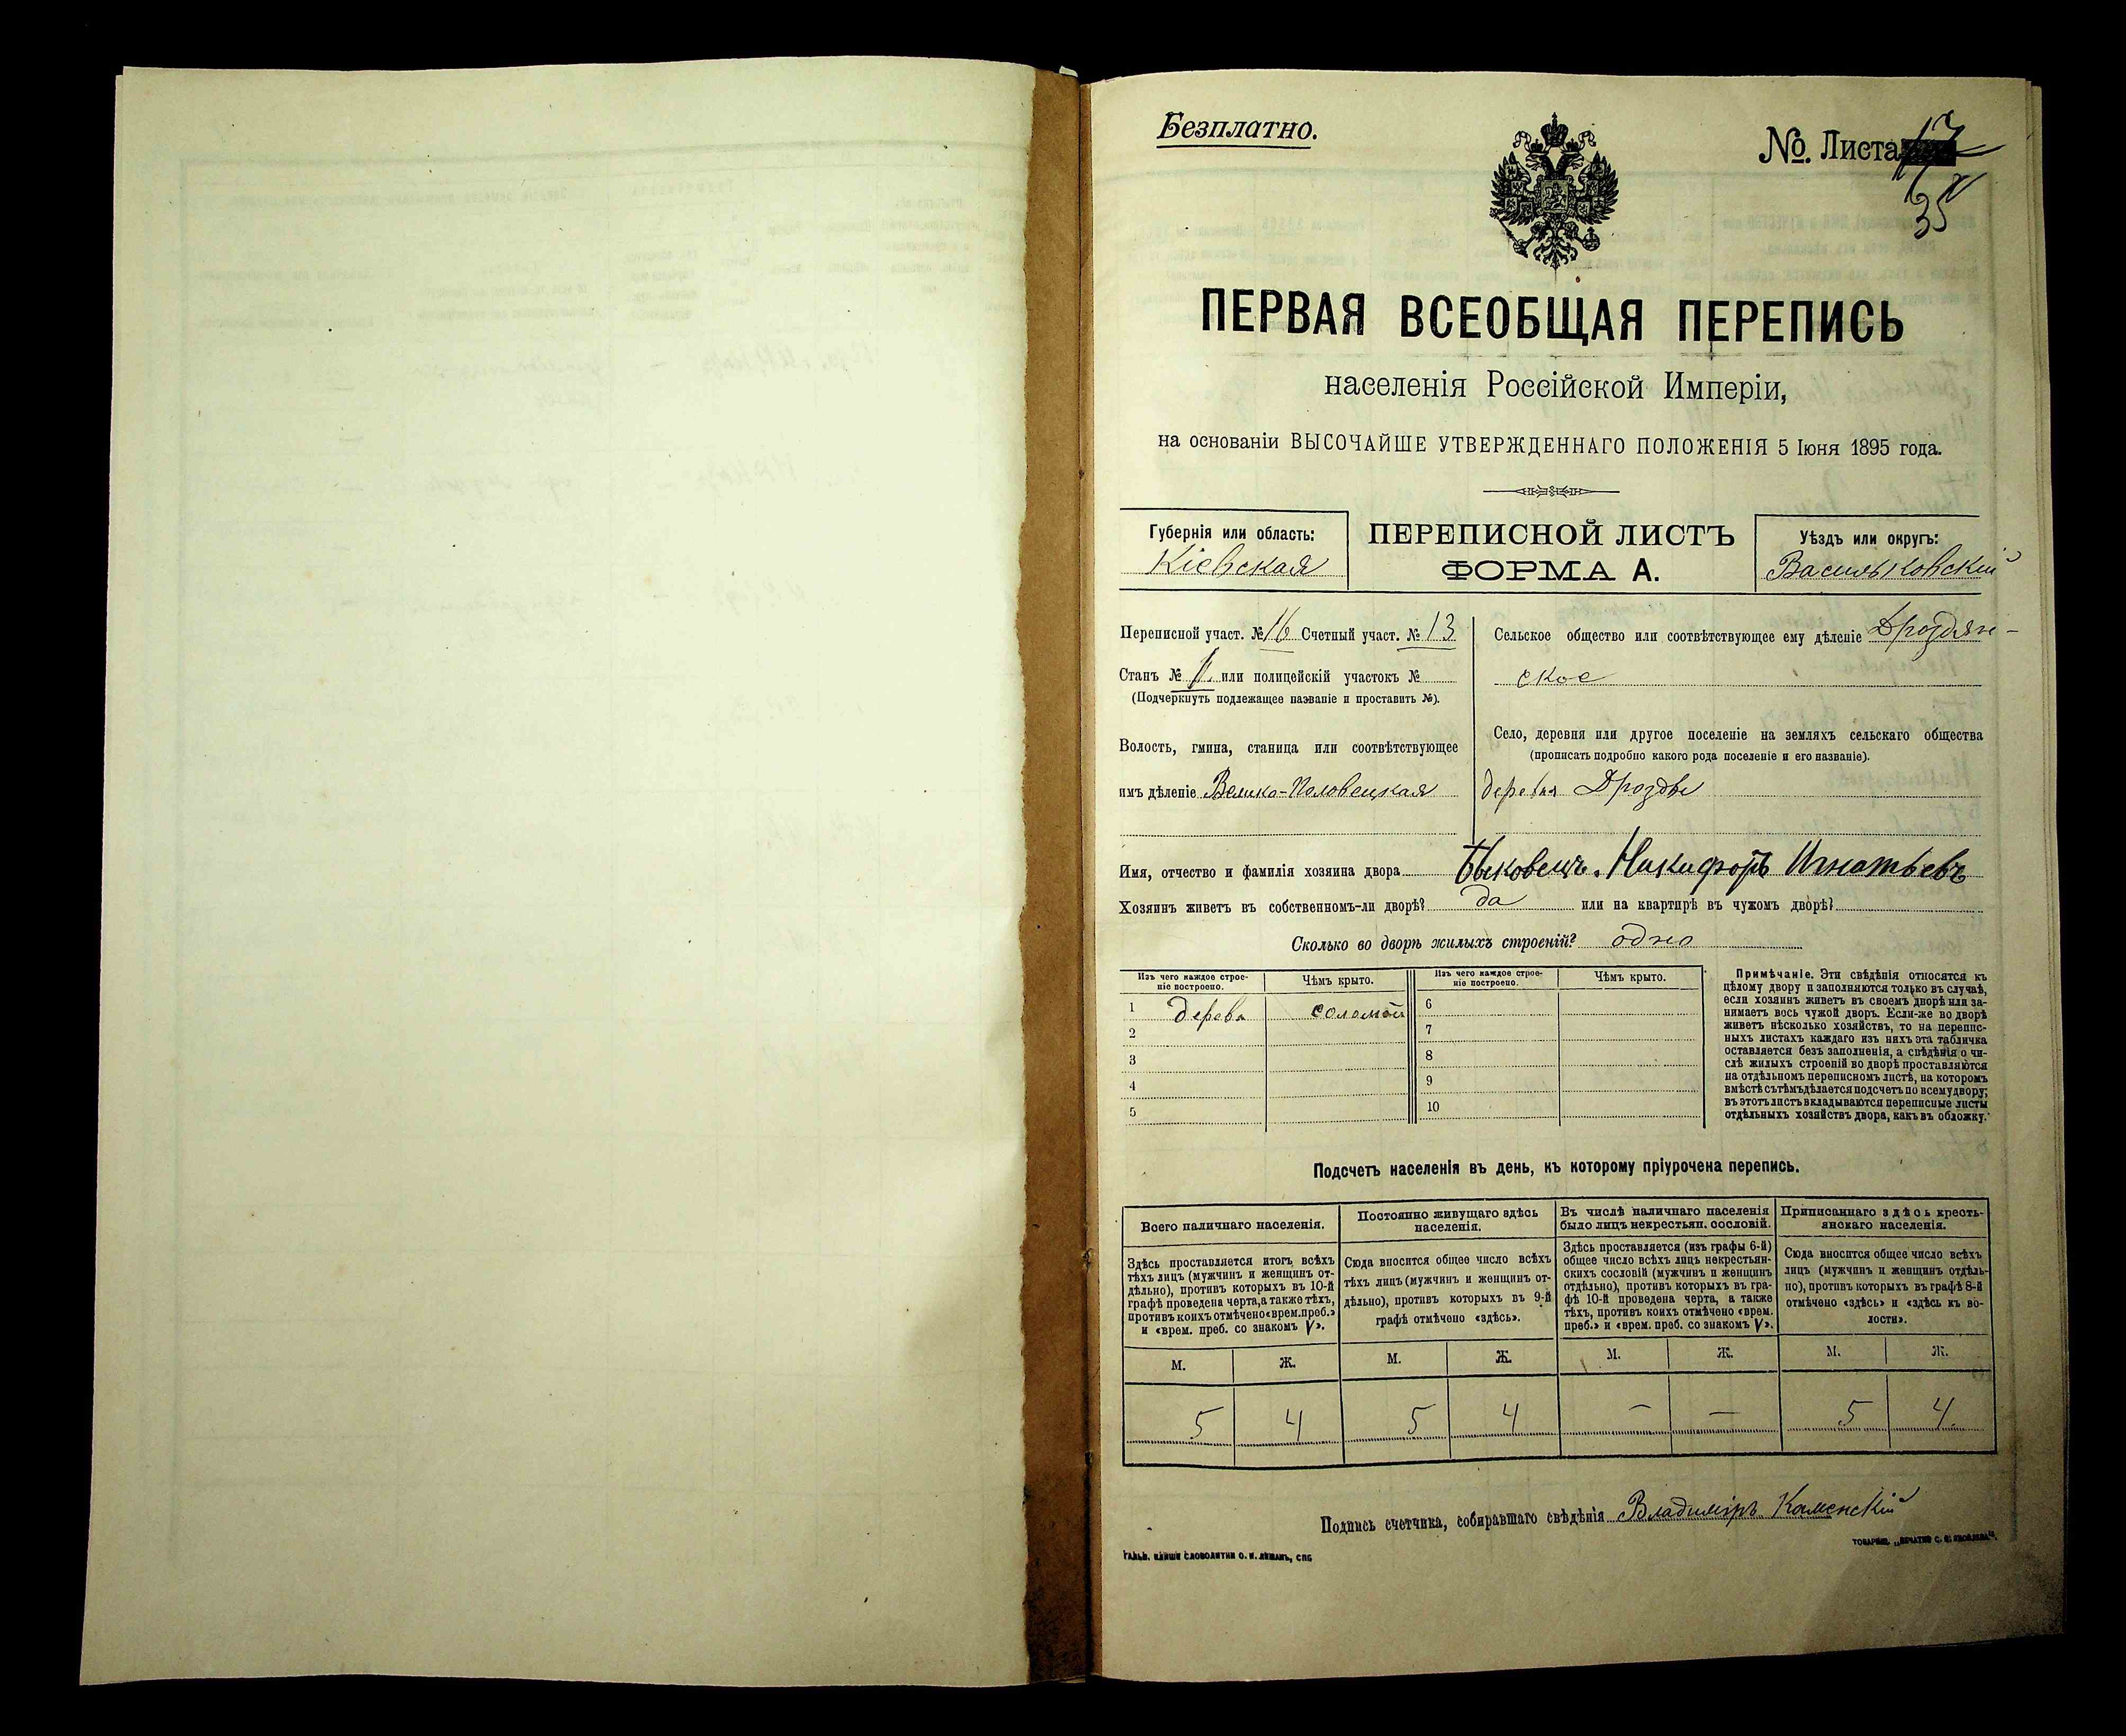 Безплатно.
№ Листа 17
35
ПЕРВАЯ ВСЕОБЩАЯ ПЕРЕПИСЬ
населенія Россійской Имперіи,
на основаніи ВЫСОЧАЙШЕ УТВЕРЖДЕННАГО ПОЛОЖЕНІЯ 5 Іюня 1895 года.
Губернія или область:
Кіевская
ПЕРЕПИСНОЙ ЛИСТЪ
ФОРМА А.
Уѣздъ или округъ:
Васильковскій
Переписной участ. № 16 Счетный участ. № 13
Станъ № II. или полицейскій участокъ №
(Подчеркнуть подлежащее названіе и проставить №).
Волость, гмина, станица или соотвѣтствующее
имъ дѣленіе Велико-Половецкая
Сельское общество или соотвѣтствующее ему дѣленіе Дроздян-
ское
Село, деревня или другое поселеніе на земляхъ сельскаго общества
(прописать подробно какого рода поселеніе и его названіе).
деревня Дрозды
Имя, отчество и фамилія хозяина двора Быковецъ. Никифоръ Игнатьевъ
Хозяинъ живетъ въ собственномъ-ли дворѣ? да или на квартирѣ въ чужомъ дворѣ?
Сколько во дворѣ жилыхъ строеній? одно
Изъ чего каждое строе-
ніе построено.
Чѣмъ крыто.
Изъ чего каждое строе-
ніе построено.
Чѣмъ крыто.
1 дерева соломой 6
2 7
3 8
4 9
5 10
Примѣчаніе. Эти свѣдѣнія относятся къ
цѣлому двору и заполняются только въ случаѣ,
если хозяинъ живетъ въ своемъ дворѣ или за-
нимаетъ весь чужой дворъ. Если-же во дворѣ
живетъ нѣсколько хозяйствъ, то на перепис-
ныхъ листахъ каждаго изъ нихъ эта табличка
оставляется безъ заполненія, а свѣдѣнія о чи-
слѣ жилыхъ строеній во дворѣ проставляются
на отдѣльномъ переписномъ листѣ, на которомъ
вмѣстѣ съ тѣмъ дѣлается подсчетъ по всему двору;
въ этотъ листъ вкладываются переписные листы
отдѣльныхъ хозяйствъ двора, какъ въ обложку.
Подсчетъ населенія въ день, къ которому пріурочена перепись.
Всего наличнаго населенія.
Здѣсь проставляется итогъ всѣхъ
тѣхъ лицъ (мужчинъ и женщинъ от-
дѣльно), противъ которыхъ въ 10-й
графѣ проведена черта, а также тѣхъ,
противъ коихъ отмѣчено «врем. преб.»
и «врем. преб. со знакомъ V».
Постоянно живущаго здѣсь
населенія.
Сюда вносится общее число всѣхъ
тѣхъ лицъ (мужчинъ и женщинъ от-
дѣльно), противъ которыхъ въ 9-й
графѣ отмѣчено «здѣсь».
Въ числѣ наличнаго населенія
было лицъ некрестьян. сословій.
Здѣсь проставляется (изъ графы 6-й)
общее число всѣхъ лицъ некрестьян-
скихъ сословій (мужчинъ и женщинъ
отдѣльно), противъ которыхъ въ гра-
фѣ 10-й проведена черта, а также
тѣхъ, противъ коихъ отмѣчено «врем.
преб.» и «врем. преб. со знакомъ V».
Приписаннаго здѣсь кресть-
янскаго населенія.
Сюда вносится общее число всѣхъ
лицъ (мужчинъ и женщинъ отдѣль-
но), противъ которыхъ въ графѣ 8-й
отмѣчено «здѣсь» и «здѣсь къ во-
лости».
М. Ж. М. Ж. М. Ж. М. Ж.
5 4 5 4 — — 5 4.
Подпись счетчика, собиравшаго свѣдѣнія Владиміръ Каменскій
ГАЛЬВ. КЛИШЕ СЛОВОЛИТНИ О. И. ЛЕМАНЪ, СПБ
ТОВАРИЩ. „ПЕЧАТНЯ С. П. ЯКОВЛЕВА“.